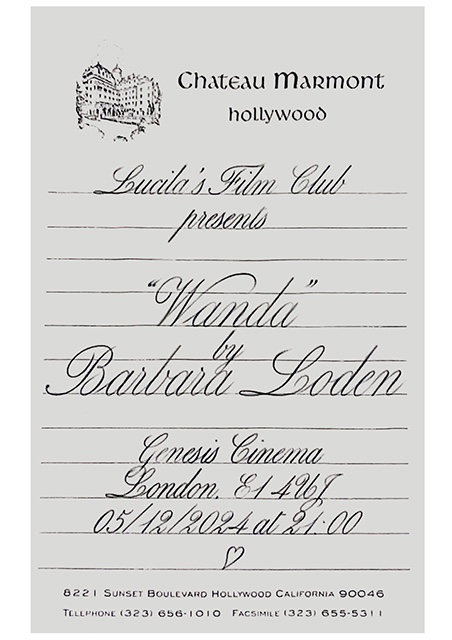 Chateau Marmont
hollywood
Lucila's Film Club
presents
"Wanda"
by
Barbara Loden
Genesis Cinema
London, E1 4UJ
05/12/2024 at 21:00
8221 Sunset Boulevard Hollywood California 90046
Telephone (323) 656-1010 Facsimile (323) 655-5311